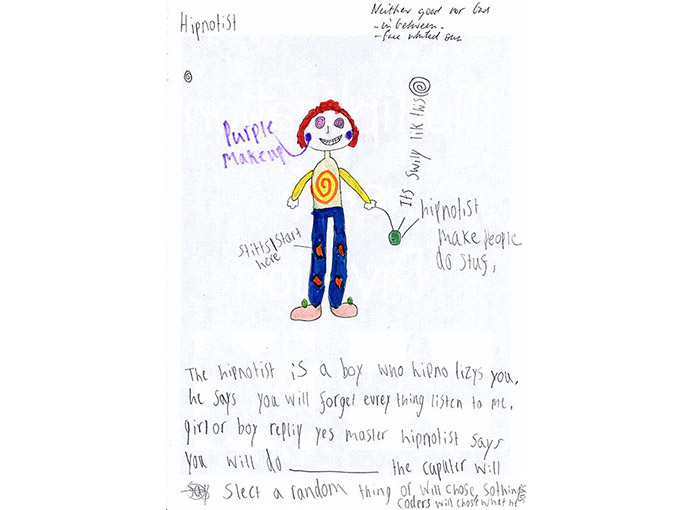 Hipnotist
Neither good nor bad
- in between.
- face whited out
Purple
Makeup
Its swirly lik this
hipnotist
make people
do stuf,
Stitts Start
here
The hipnotist is a boy who hipnotizys you,
he says you will forget evrey thing listen to me,
girl or boy repliy yes master hipnotist says
you will do ________ the caputer will
say slect a random thing or will chose, sothing
coders will chose what he